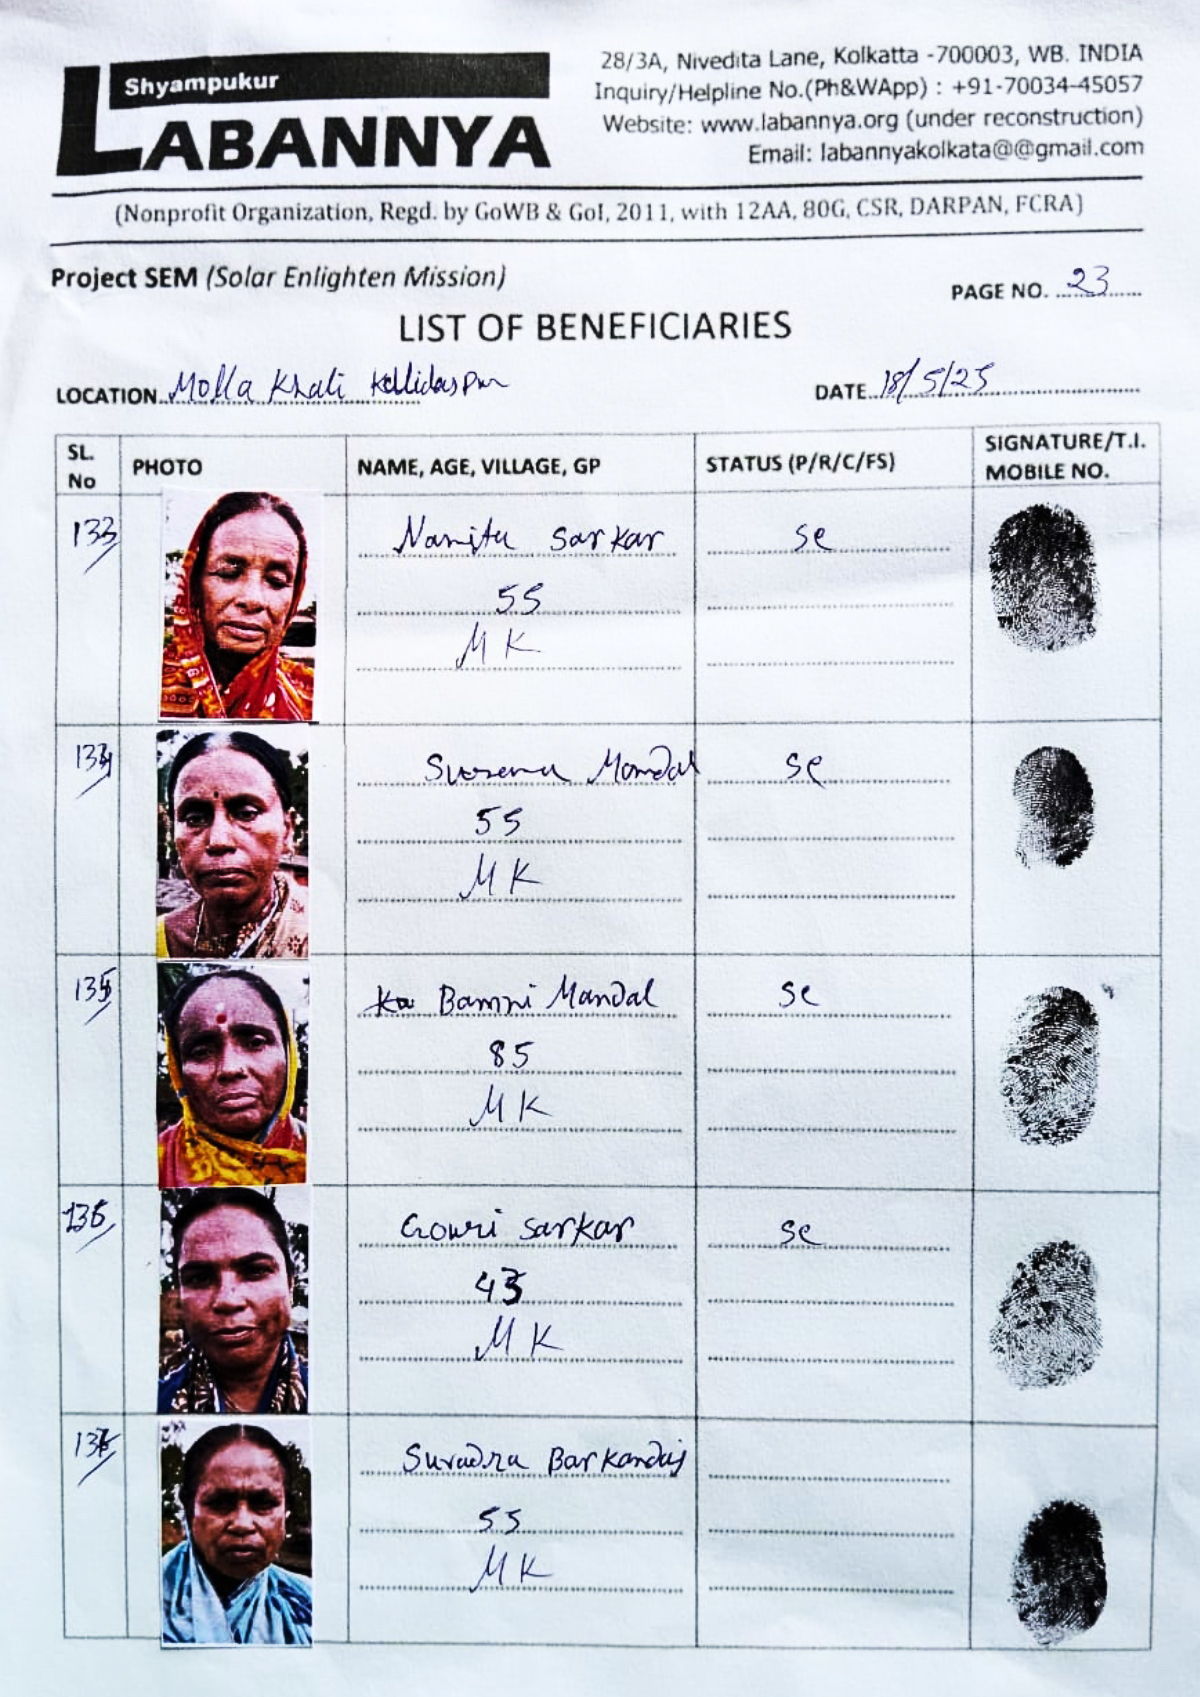 Shyampukur
LABANNYA
28/3A, Nivedita Lane, Kolkatta -700003, WB. INDIA
Inquiry/Helpline No.(Ph&WApp) : +91-70034-45057
Website: www.labannya.org (under reconstruction)
Email: labannyakolkata@@gmail.com
(Nonprofit Organization, Regd. by GoWB & GoI, 2011, with 12AA, 80G, CSR, DARPAN, FCRA)
Project SEM (Solar Enlighten Mission)
PAGE NO. 23
LIST OF BENEFICIARIES
LOCATION Molla Khali Kallidaspur
DATE 18/5/25
SL. No
PHOTO
NAME, AGE, VILLAGE, GP
STATUS (P/R/C/FS)
SIGNATURE/T.I.
MOBILE NO.
133 Namita Sarkar sc
55
MK
134 Mondal sc
55
MK
135 Bamni Mandal sc
85
MK
136 Gowri Sarkar sc
43
MK
137 Suvadra
55
MK